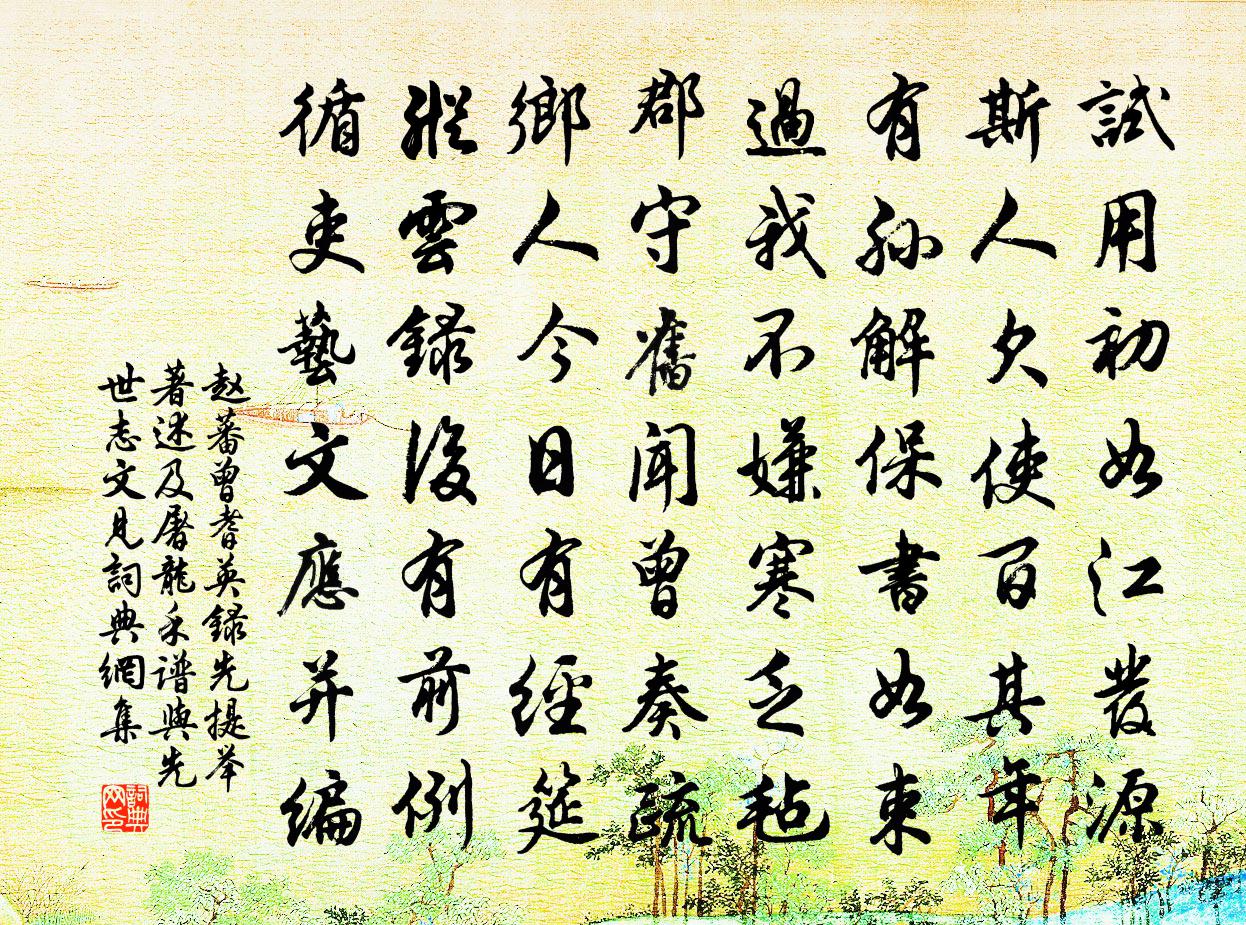 試用初如江發源
斯人欠使百其年
有孙解保書如束
過我不嫌寒乏毡
郡守舊聞曾奏疏
鄉人今日有經筵
縱雲録後有前例
循吏藝文應并編
赵蕃曾耆英録先提举
著述及屠龍禾譜與先
世志文見詞典網集
詞典网印